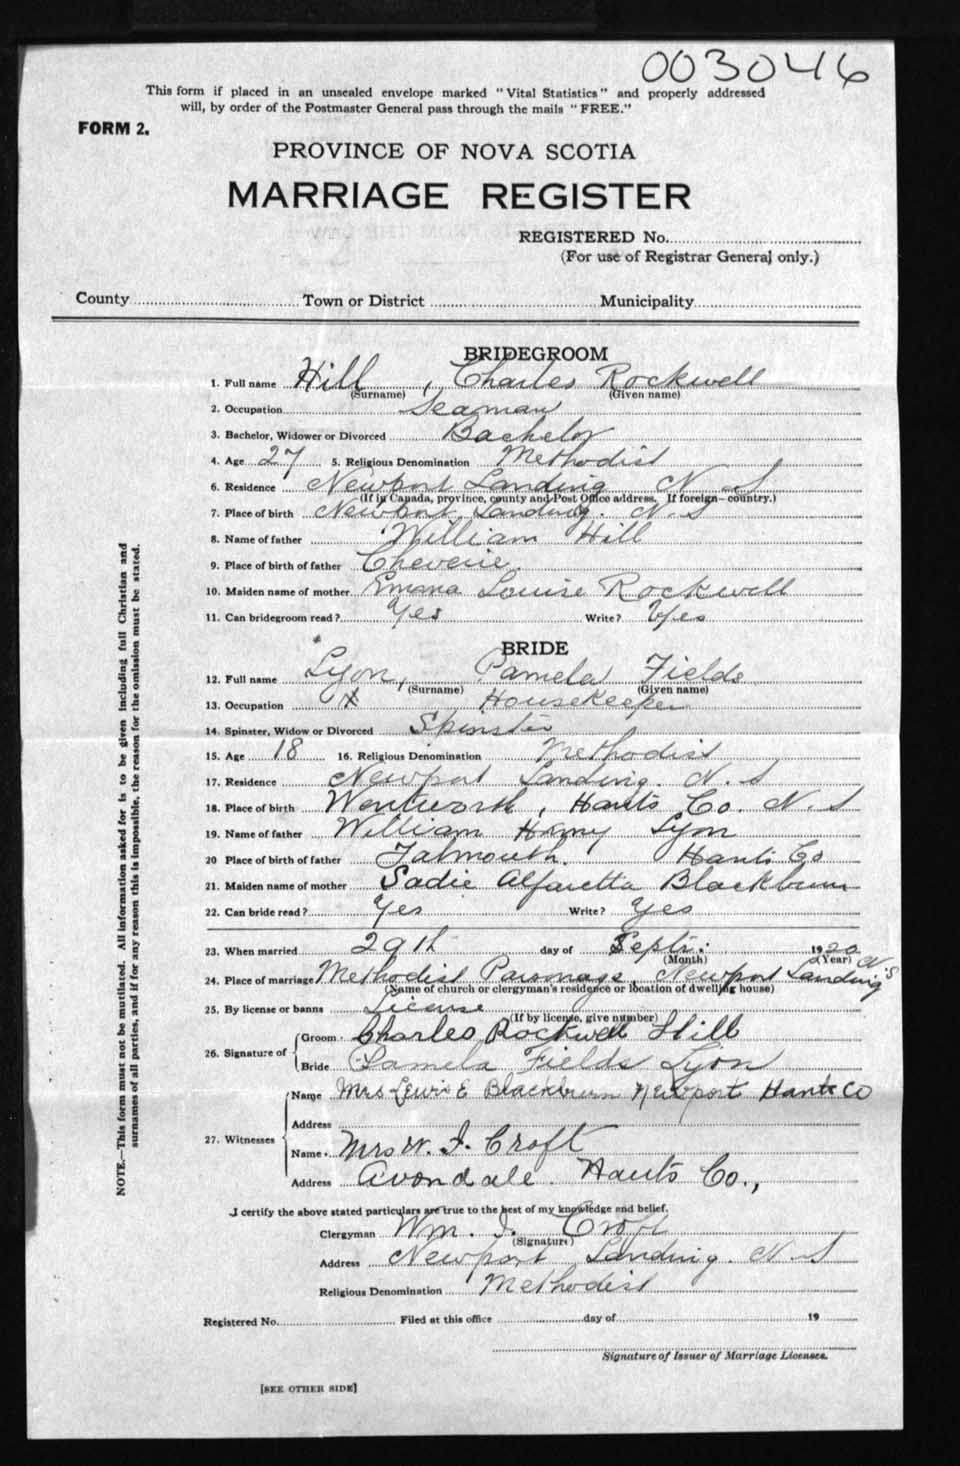 003046
This form if placed in an unsealed envelope marked "Vital Statistics" and properly addressed
will, by order of the Postmaster General pass through the mails "FREE."
FORM 2.
PROVINCE OF NOVA SCOTIA
MARRIAGE REGISTER
REGISTERED No.
(For use of Registrar General only.)
County Town or District Municipality
BRIDEGROOM
1. Full name Hill, Charles Rockwell
(Surname) (Given name)
2. Occupation Seaman
3. Bachelor, Widower or Divorced Bachelor
4. Age 27 5. Religious Denomination Methodist
6. Residence Newport Landing N S
(If in Canada, province, county and Post Office address. If foreign—country.)
7. Place of birth Newport Landing. N. S
8. Name of father William Hill
9. Place of birth of father Cheverie
10. Maiden name of mother Emma Louise Rockwell
11. Can bridegroom read? Yes Write? Yes
BRIDE
12. Full name Lyon, Pamela Fields
(Surname) (Given name)
13. Occupation X Housekeeper
14. Spinster, Widow or Divorced Spinster
15. Age 18 16. Religious Denomination Methodist
17. Residence Newport Landing. N. S
18. Place of birth Wentworth, Hants Co. N. S
19. Name of father William Henry Lyon
20 Place of birth of father Falmouth. Hants Co
21. Maiden name of mother Sadie Alfaretta Blackburn
22. Can bride read? Yes Write? Yes
23. When married 29th day of Sept. 1920
(Month) (Year)
24. Place of marriage Methodist Parsonage, Newport Landing N S
(Name of church or clergyman's residence or location of dwelling house)
25. By license or banns License
(If by license, give number)
26. Signature of Groom Charles Rockwell Hill
Bride Pamela Fields Lyon
27. Witnesses Name Mrs Lewis E Blackburn Newport Hants Co
Address
Name Mrs W. I. Croft
Address Avondale. Hants Co.,
I certify the above stated particulars are true to the best of my knowledge and belief.
Clergyman Wm. I. Croft
(Signature)
Address Newport Landing. N. S
Religious Denomination Methodist
Registered No. Filed at this office day of 19
Signature of Issuer of Marriage Licenses.
[SEE OTHER SIDE]
NOTE.—This form must not be mutilated. All information asked for is to be given including full Christian and
surnames of all parties, and if for any reason this is impossible, the reason for the omission must be stated.